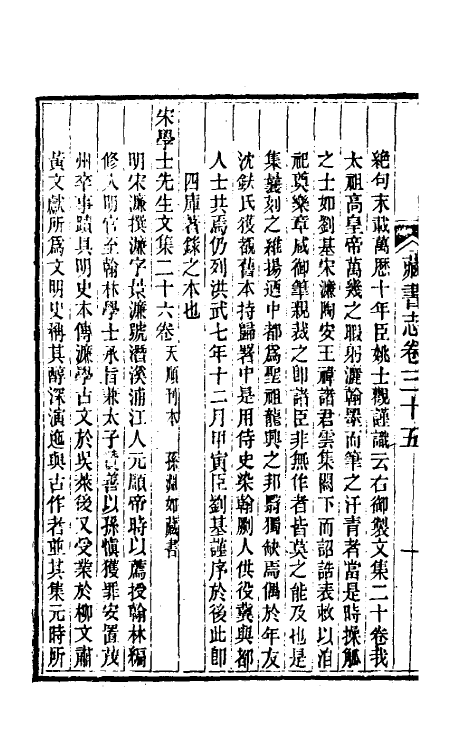 藏書志卷三十五
一
絶句末載萬歷十年臣姚士觀謹識云右御製文集二十卷我
太祖高皇帝萬幾之暇躬灑翰墨而筆之汗青者當是時操觚
之士如劉基宋濂陶安王禕諸君雲集闕下而詔誥表敕以洎
祀奠樂章咸御筆親裁之卽諸臣非無作者皆莫之能及也是
集曩刻之維揚迺中都爲聖祖龍興之邦翳獨缺焉偶於年友
沈鈇氏獲覩舊本持歸署中是用侍史染翰劂人供役冀與都
人士共焉仍列洪武七年十二月甲寅臣劉基謹序於後此卽
四庫著錄之本也
宋學士先生文集二十六卷 天順刊本 孫淵如藏書
明宋濂撰濂字景濂號潛溪浦江人元順帝時以薦授翰林編
修入明官至翰林學士承旨兼太子贊善以孫愼獲罪安置茂
州卒事蹟具明史本傳濂學古文於吳萊後又受業於柳文肅
黃文獻所爲文明史稱其醇深演迤與古作者並其集元時所